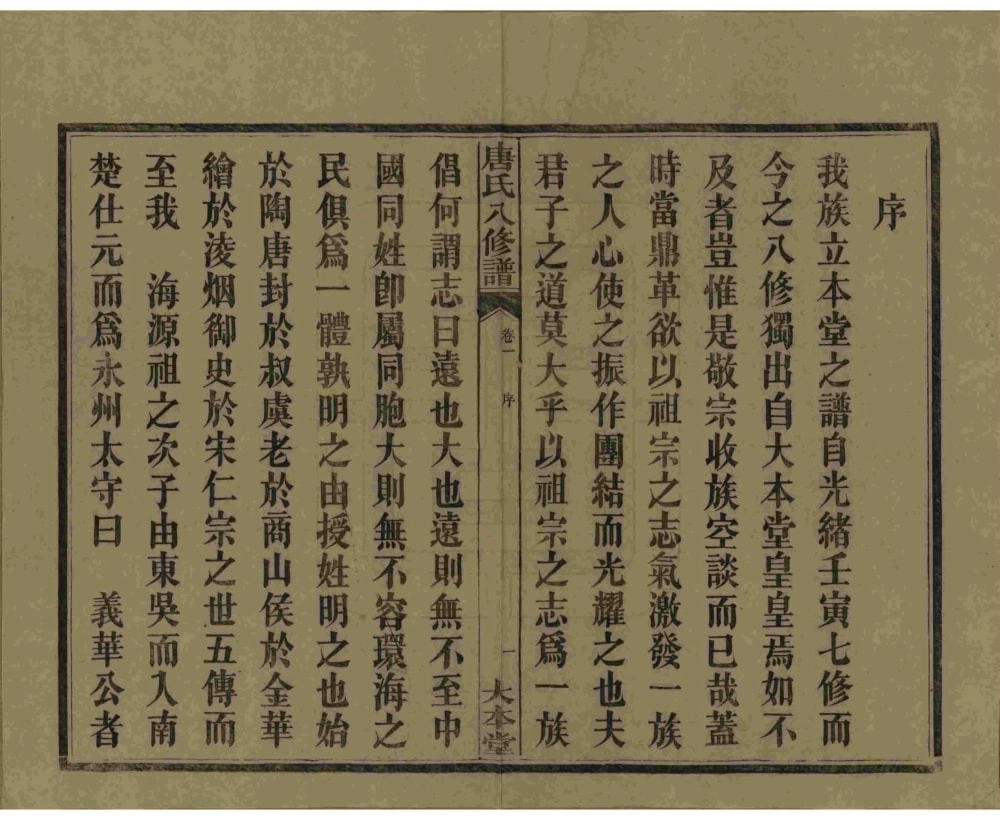 序
我族立本堂之譜自光緒壬寅七修而
今之八修獨出自大本堂皇皇焉如不
及者豈惟是敬宗收族空談而已哉蓋
時當鼎革欲以祖宗之志氣激發一族
之人心使之振作團結而光耀之也夫
君子之道莫大乎以祖宗之志爲一族
唐氏八修譜
卷一 序
一
大本堂
倡何謂志曰遠也大也遠則無不至中
國同姓卽屬同胞大則無不容環海之
民俱爲一體孰明之由授姓明之也始
於陶唐封於叔虞老於商山侯於金華
繪於淩烟御史於宋仁宗之世五傳而
至我 海源祖之次子由東吳而入南
楚仕元而爲永州太守曰 義華公者